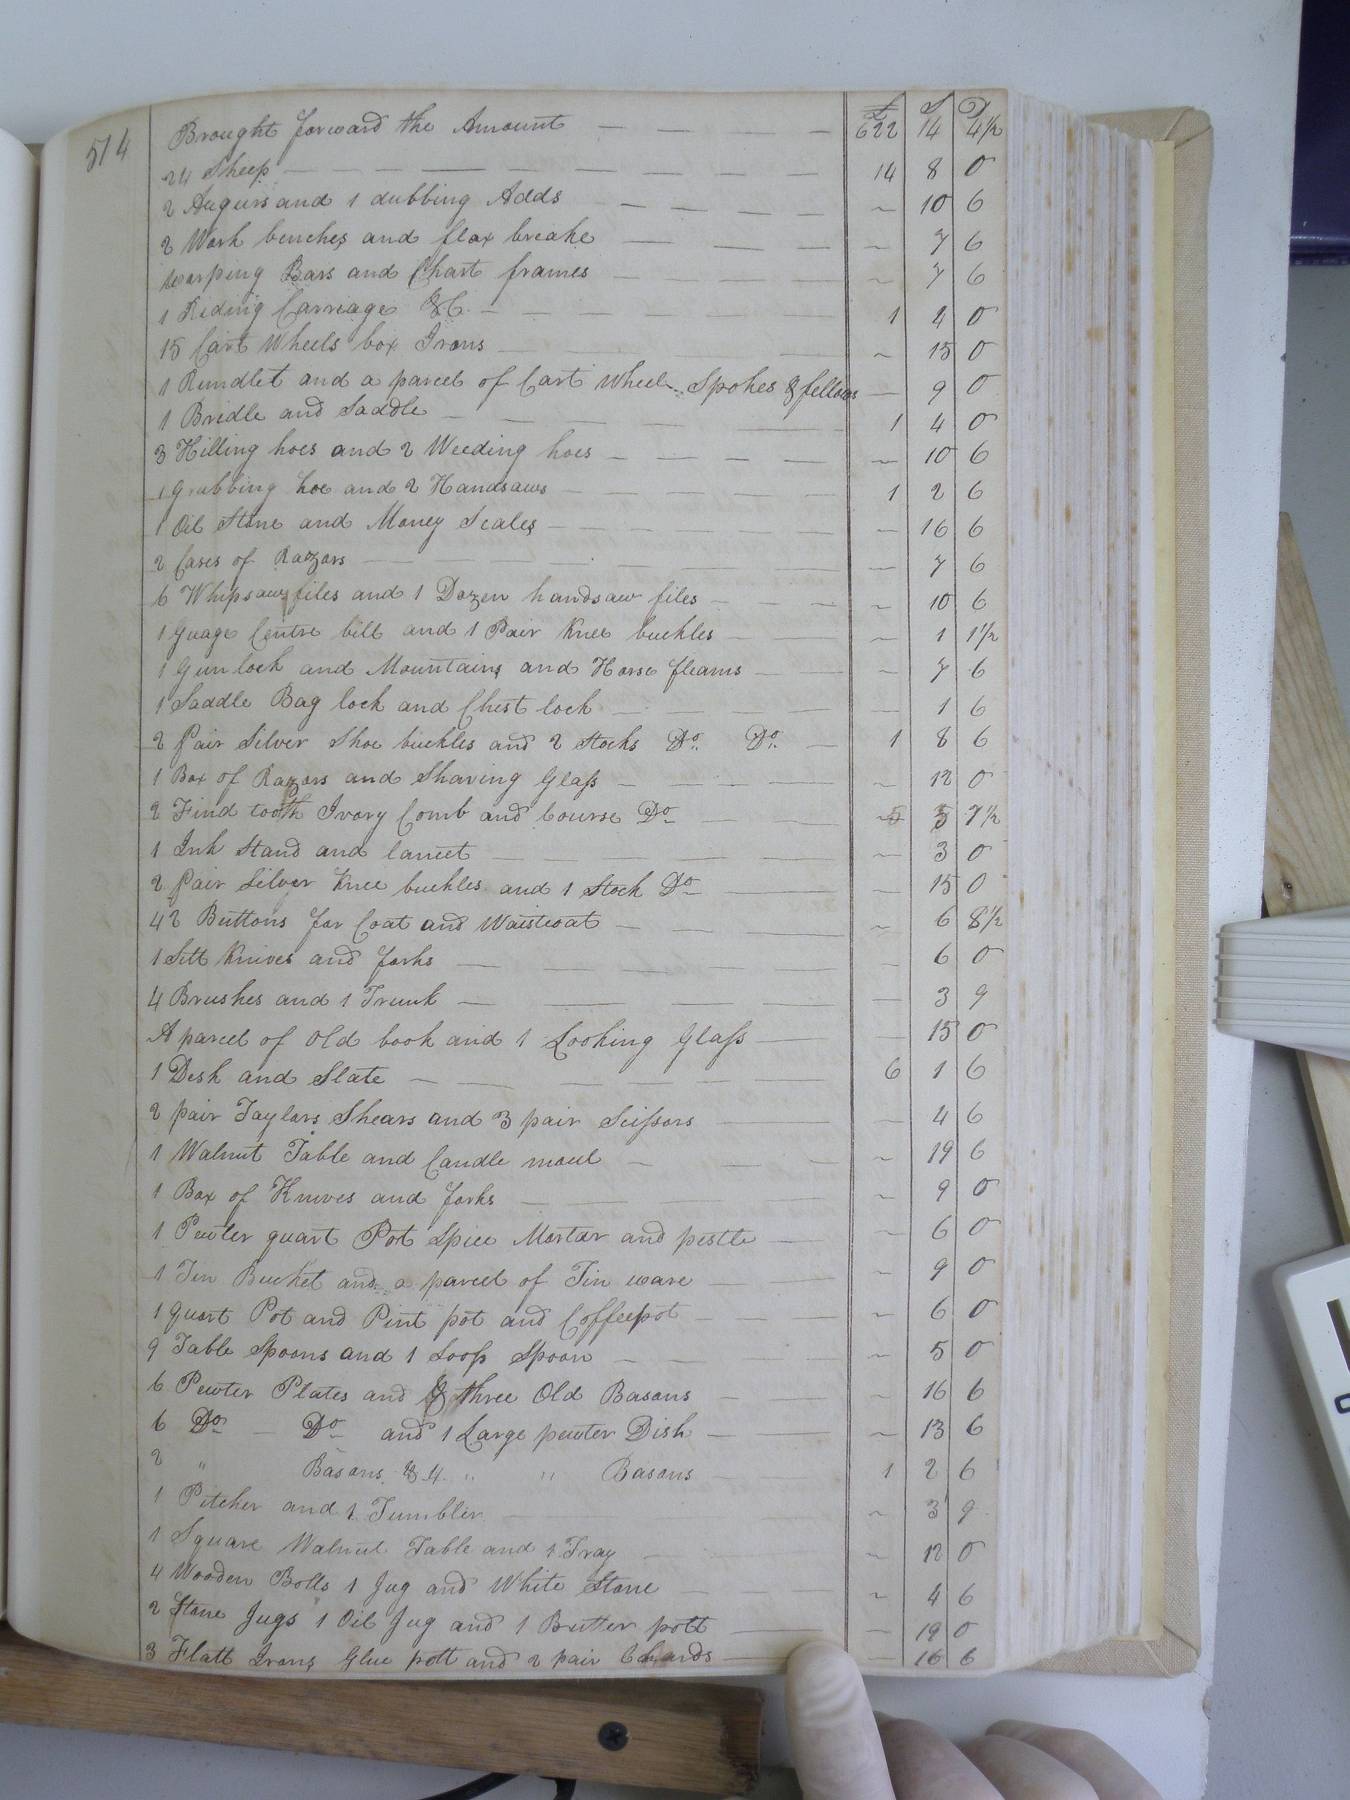 514
£ S D
Brought forward the Amount — — — 622 14 4½
24 Sheep — — — — 14 8 0
2 Augurs and 1 dubbing Adds — — — ~ 10 6
2 Work benches and flax breake — — — ~ 7 6
Warping Bars and Chart frames — — — ~ 7 6
1 Riding Carriage &C. — — — 1 4 0
15 Cart Wheels box Irons — — ~ 15 0
1 Rundlet and a parcel of Cart Wheel Spokes & fellows — 9 0
1 Bridle and Saddle — — — 1 4 0
3 Hilling hoes and 2 Weeding hoes — — — ~ 10 6
1 Grubbing hoe and 2 Handsaws — — — 1 2 6
1 Oil Stone and Money Scales — — — — 16 6
2 Cases of Razors — — — — 7 6
6 Whipsaw files and 1 Dozen handsaw files — — — ~ 10 6
1 Guage Centre bitt and 1 Pair Knee buckles — — ~ 1 1½
1 Gun lock and Mountains and Horse fleams — — ~ 7 6
1 Saddle Bag lock and Chest lock — — — — 1 6
2 Pair Silver Shoe buckles and 2 Stocks Do. Do. — 1 8 6
1 Box of Razors and Shaving Glass — — — ~ 12 0
2 Find tooth Ivory Comb and Course Do — — ~ 5 7½
1 Ink Stand and lancet — — — ~ 3 0
2 Pair Silver Knee buckles and 1 Stock Do — — — 15 0
42 Buttons for Coat and Waistcoat — — — ~ 6 8½
1 Sett Knives and forks — — — ~ 6 0
4 Brushes and 1 Trunk — — — — 3 9
A parcel of Old book and 1 Looking Glass — — — 15 0
1 Desk and Slate — — — 6 1 6
2 pair Taylors Shears and 3 pair Scissors — — — 4 6
1 Walnut Table and Candle moul — — — ~ 19 6
1 Box of Knives and forks — — ~ 9 0
1 Pewter quart Pot Spice Mortar and pestle — — 6 0
1 Tin Bucket and a parcel of Tin ware — — ~ 9 0
1 Quart Pot and Pint pot and Coffeepot — — ~ 6 0
9 Table Spoons and 1 Soop Spoon — — ~ 5 0
6 Pewter Plates and & three Old Basons — — ~ 16 6
6 Do — Do and 1 Large pewter Dish — — ~ 13 6
2 " Basons & 4 " " Basons — 1 2 6
1 Pitcher and 1 Tumbler — — ~ 3 9
1 Square Walnut Table and 1 Tray — — ~ 12 0
4 Wooden Bolls 1 Jug and White Stone — — ~ 4 6
2 Stone Jugs 1 Oil Jug and 1 Butter pott — — 19 0
3 Flatt Irons Glue pott and 2 pair Chards — — 16 6